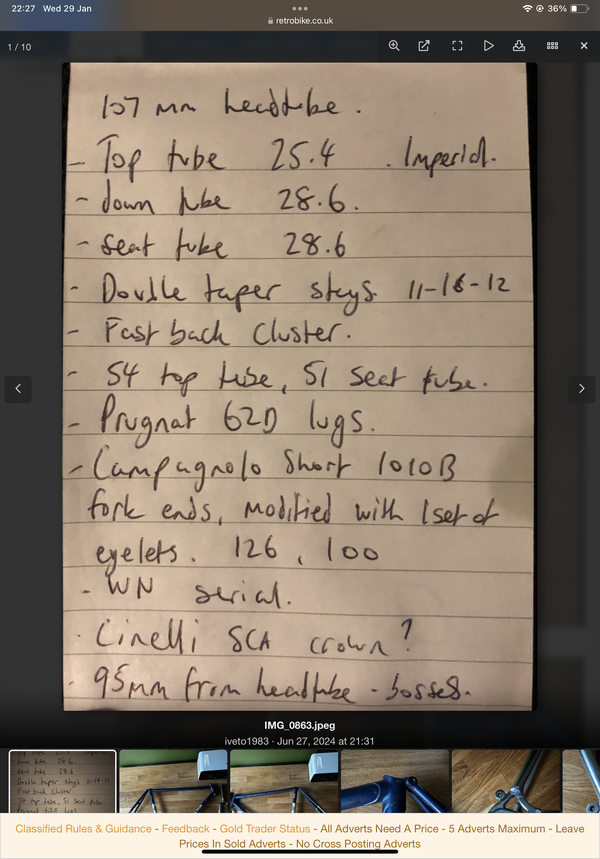 22:27 Wed 29 Jan
36%
retrobike.co.uk
1 / 10
107 mm headtube.
- Top tube 25.4 . Imperial.
- down tube 28.6.
- seat tube 28.6
- Double taper stays. 11-16-12
- Fast back cluster.
- 54 top tube, 51 seat tube.
- Prugnat 62D lugs.
- Campagnolo Short 1010B
fork ends, modified with 1 set of
eyelets. 126, 100
- WN serial.
. Cinelli SCA crown?
. 95mm from headtube - bosses.
IMG_0863.jpeg
iveto1983 · Jun 27, 2024 at 21:31
Classified Rules & Guidance - Feedback - Gold Trader Status - All Adverts Need A Price - 5 Adverts Maximum - Leave
Prices In Sold Adverts - No Cross Posting Adverts